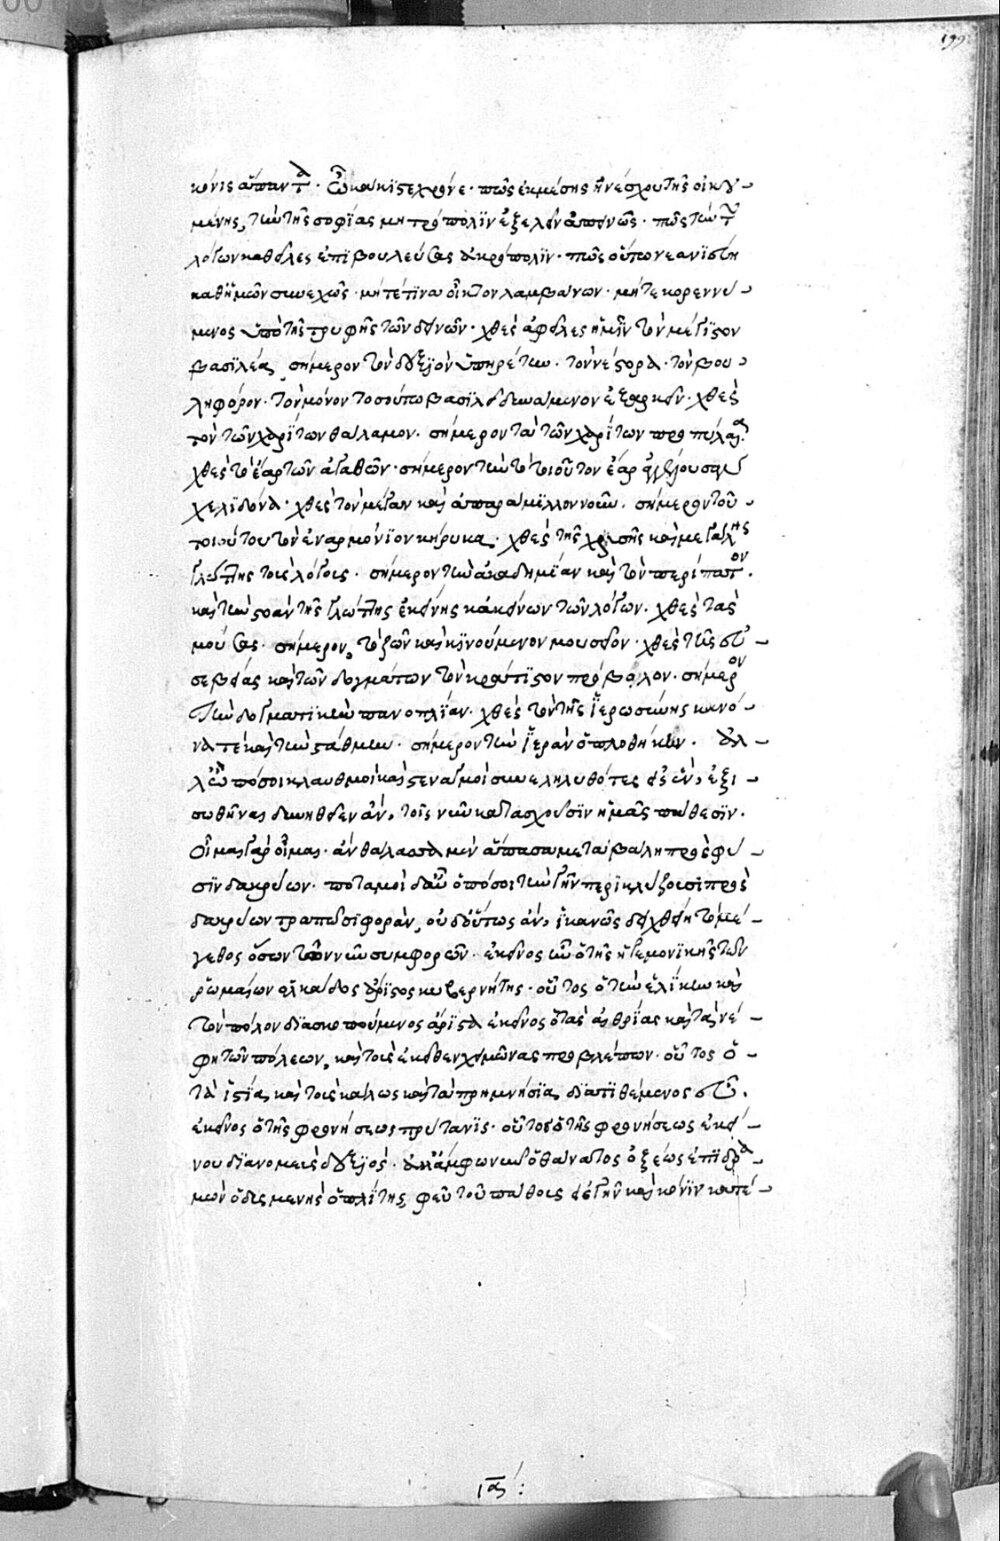 199
κόνις ἅπαντα. ὦ κάκιστε χρόνε. πῶς ἐκ μέσης ἠνέσχου τῆς οἰκου
μένης, τὴν τῆς σοφίας μητρόπολϊν ἐξελεῖν ἀπηνῶς. πῶς τὴν τῶν
λόγων καθεῖλες ἐπϊβουλεύσας ἀκρόπολϊν. πῶς οὕπω νεανϊστὴ
καθ ἡμῶν συνεχῶς. μήτέ τϊνα οἶκτον λαμβάνων. μήτε κορεννύ
μενος ὑπὸ τῆς τρυφῆς τῶν δεινῶν. χθὲς ἀφεῖλες ἡμῖν τὸν μέγϊστον
βασϊλέα, σήμερον τὸν δεξϊὸν ὑπηρέτην. τὸν νέστορα. τὸν βου
ληφόρον. τὸν μόνον τοσούτω βασϊλεῖ δυνάμενον ἐξαρκεῖν. χθὲς
τὸν τῶν χαρίτων θάλαμον. σήμερον τὰ τῶν χαρίτων προπύλαια.
χθὲς τὸ ἔαρ τῶν ἀγαθῶν. σήμερον τὴν τὸ τοιοῦτον ἔαρ αὐξήσουσαν
χελϊδόνα. χθὲς τὸν μέγαν καὶ ἀπαράμϊλλον νοῦν. σήμερον τοῦ
τοιούτου τὸν ἐναρμόνϊον κήρυκα. χθὲς τῆς χρυσῆς καὶ μεγάλης
γλώττης τοὺς λόγους. σήμερον τὴν ἀκαδημείαν καὶ τὸν περίπατον.
καὶ τὴν στοὰν τῆς γλώττης ἐκείνης κἀκείνων τῶν λόγων. χθὲς τὰς
μούσας. σήμερον, τὸ ζῶν καὶ κϊνούμενον μουσεῖον. χθὲς τῆς εὐ
σεβείας καὶ τῶν δογμάτων τὸν κράτϊστον πρόβολον. σήμερον
τὴν δογματϊκὴν πανοπλίαν. χθὲς τὸν τῆς ἱερωσύνης κανό
να τὲ καὶ τὴν στάθμην. σήμερον τὴν ἱερὰν ὁπλοθήκην. ἀλ
λ ὢ πόσοι κλαυθμοὶ καὶ στεναγμοὶ συνεληλυθότες εἰς ἓν, ἐξι
σωθῆναι δυνηθεῖεν ἂν, τοῖς νῦν κατασχοῦσϊν ἡμᾶς πάθεσϊν.
οἶμαι γὰρ οἶμαι. ἂν θάλασσα μὲν ἅπασα μεταβάλη πρὸς φύ
σϊν δακρύων. ποταμοὶ δ αὖ ὁπόσοι τὴν γῆν περϊκλύζουσι πρὸς
δακρύων τραπῶσϊ φορὰν, οὐδ οὕτως ἂν, ἱκανῶς δειχθείη τὸ μέ
γεθος ὅσον τῶν νῦν συμφορῶν. ἐκεῖνος ὢν ὁ τῆς ἡγεμονϊκῆς τῶν
ῥωμαίων ὁλκάδος ἄρϊστος κυβερνήτης. οὗτος ὁ τὴν ἑλίκην καὶ
τὸν πόλον δϊασκοπούμενος ἄρϊστα. ἐκεῖνος ὁ τὰς αἰθρίας καὶ τὰ νέ
φη τῶν πόλεων, καὶ τοὺς ἐκεῖθεν χειμῶνας προβλέπων. οὗτος ὁ
τὰ ἱστία, καὶ τοὺς κάλως καὶ τὰ πρημνήσϊα, δϊατϊθέμενος εὖ.
ἐκεῖνος ὁ τῆς φρονήσεως πρύτανϊς. οὗτος ὁ τῆς φρονήσεως ἐκεί
νου δϊανομεὺς δεξϊός. ἀλλ ἄμφω νῦν ὁ θάνατος ὀξέως ἐπϊδρα
μὼν ὁ δυσμενὴς ὁπλίτης, φεῦ τοῦ πάθους εἰς γῆν καὶ κόνϊν κατέ
ια: